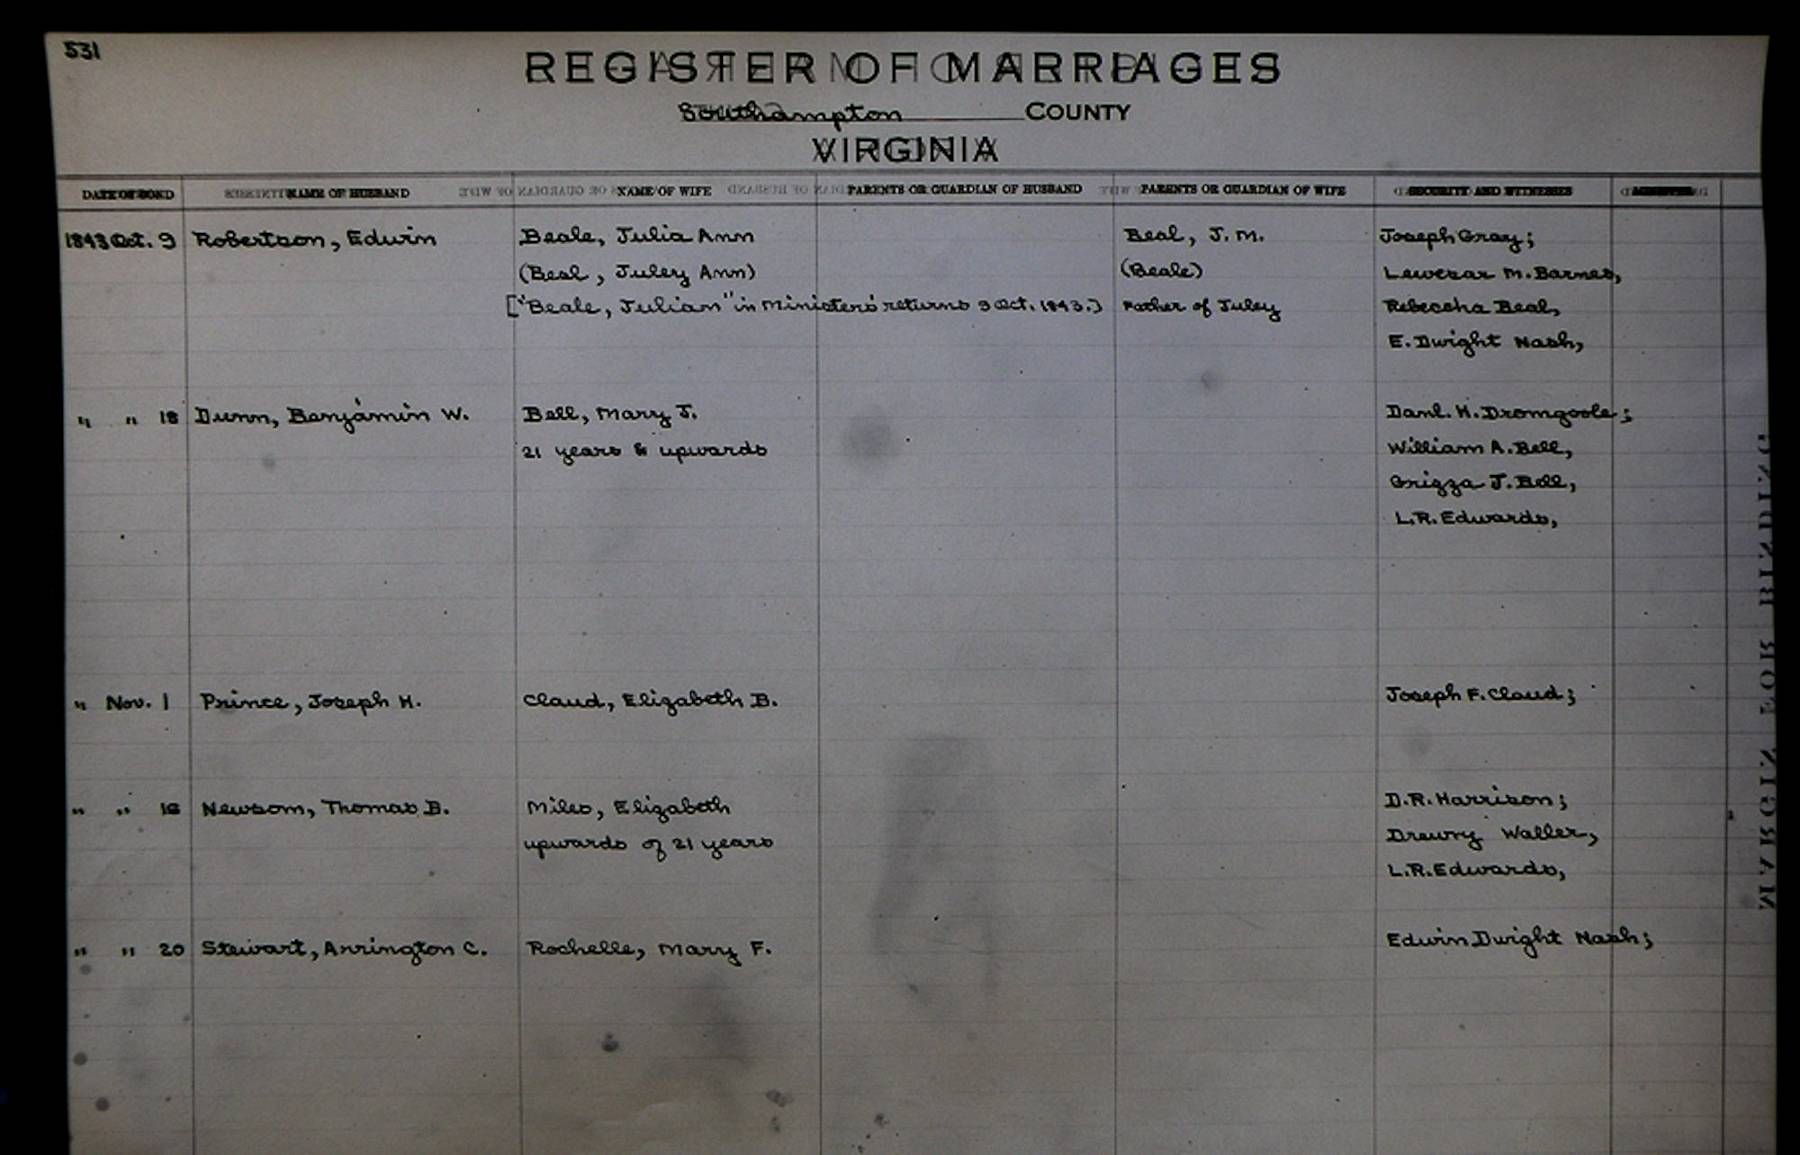 531
REGISTER OF MARRIAGES
Southampton COUNTY
VIRGINIA
DATE OF BOND NAME OF HUSBAND NAME OF WIFE PARENTS OR GUARDIAN OF HUSBAND PARENTS OR GUARDIAN OF WIFE SECURITY AND WITNESSES MINISTER
1843 Oct. 9 Robertson, Edwin Beale, Julia Ann Beal, J. M. Joseph Gray;
(Beal, Juley Ann) (Beale) Lewezar M. Barnes,
["Beale, Julian" in Ministers' returns 9 Oct. 1843.] Father of Juley Rebeccha Beal,
E. Dwight Nash,
" " 18 Dunn, Benjamin W. Bell, Mary J. Danl. H. Dromgoole;
21 years & upwards William A. Bell,
Grizza J. Bell,
L.R. Edwards,
" Nov. 1 Prince, Joseph H. Claud, Elizabeth B. Joseph F. Claud;
" " 16 Newsom, Thomas B. Miles, Elizabeth D.R. Harrison;
upwards of 21 years Drewry Waller,
L.R. Edwards,
" " 20 Stewart, Arrington C. Rochelle, Mary F. Edwin Dwight Nash;
MARGIN FOR BINDING